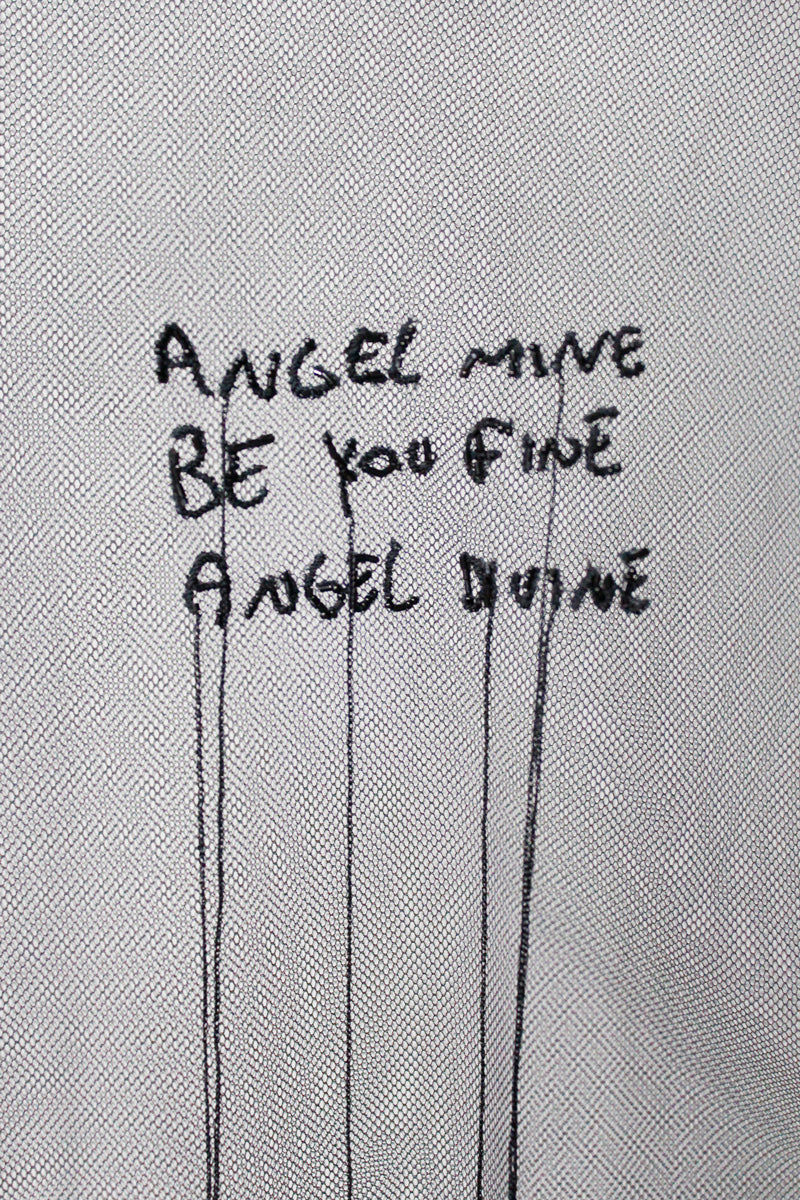 ANGEL MINE
BE YOU FINE
ANGEL DIVINE